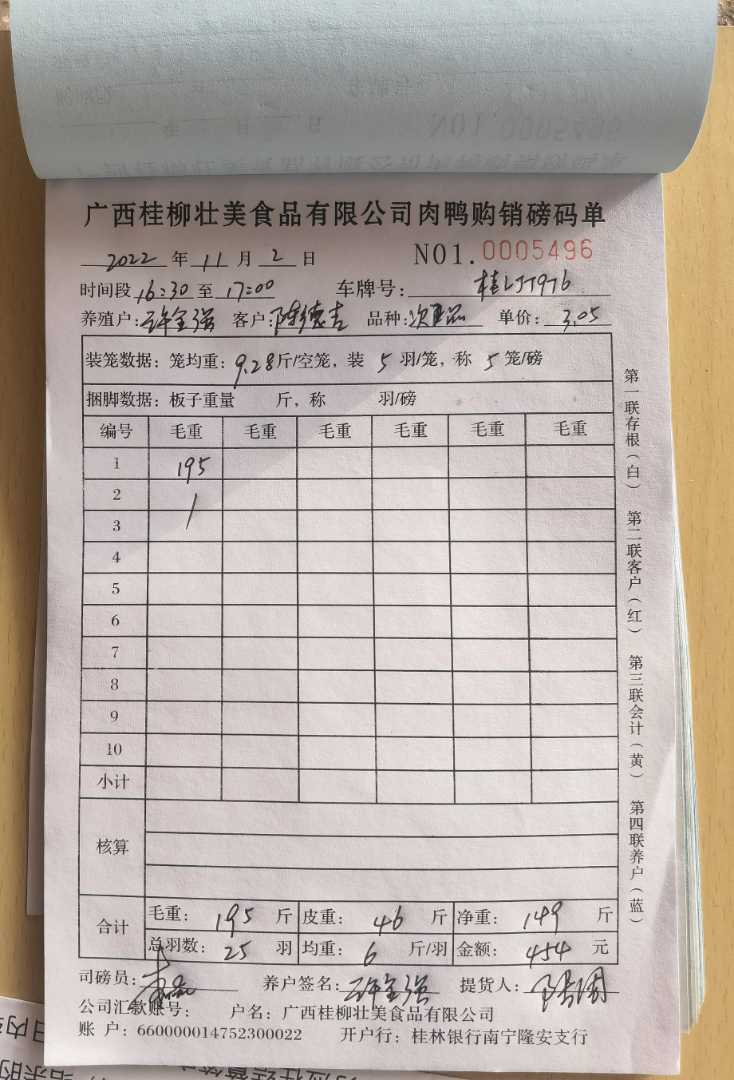 广西桂柳壮美食品有限公司肉鸭购销磅码单
2022 年 11 月 2 日 NO1.0005496
时间段 16:30 至 17:00 车牌号: 桂LJT976
养殖户: 许全强 客户: 陈德吉 品种: 次品 单价: 3.05
装笼数据: 笼均重: 9.28 斤/空笼, 装 5 羽/笼, 称 5 笼/磅
捆脚数据: 板子重量 斤, 称 羽/磅
编号 毛重 毛重 毛重 毛重 毛重 毛重
1 195
2
3
4
5
6
7
8
9
10
小计
核算
合计 毛重: 195 斤 皮重: 46 斤 净重: 149 斤
总羽数: 25 羽 均重: 6 斤/羽 金额: 454 元
司磅员: 养户签名: 许全强 提货人:
公司汇款账号: 户名: 广西桂柳壮美食品有限公司
账 户: 660000014752300022 开户行: 桂林银行南宁隆安支行
第一联存根(白) 第二联客户(红) 第三联会计(黄) 第四联养户(蓝)